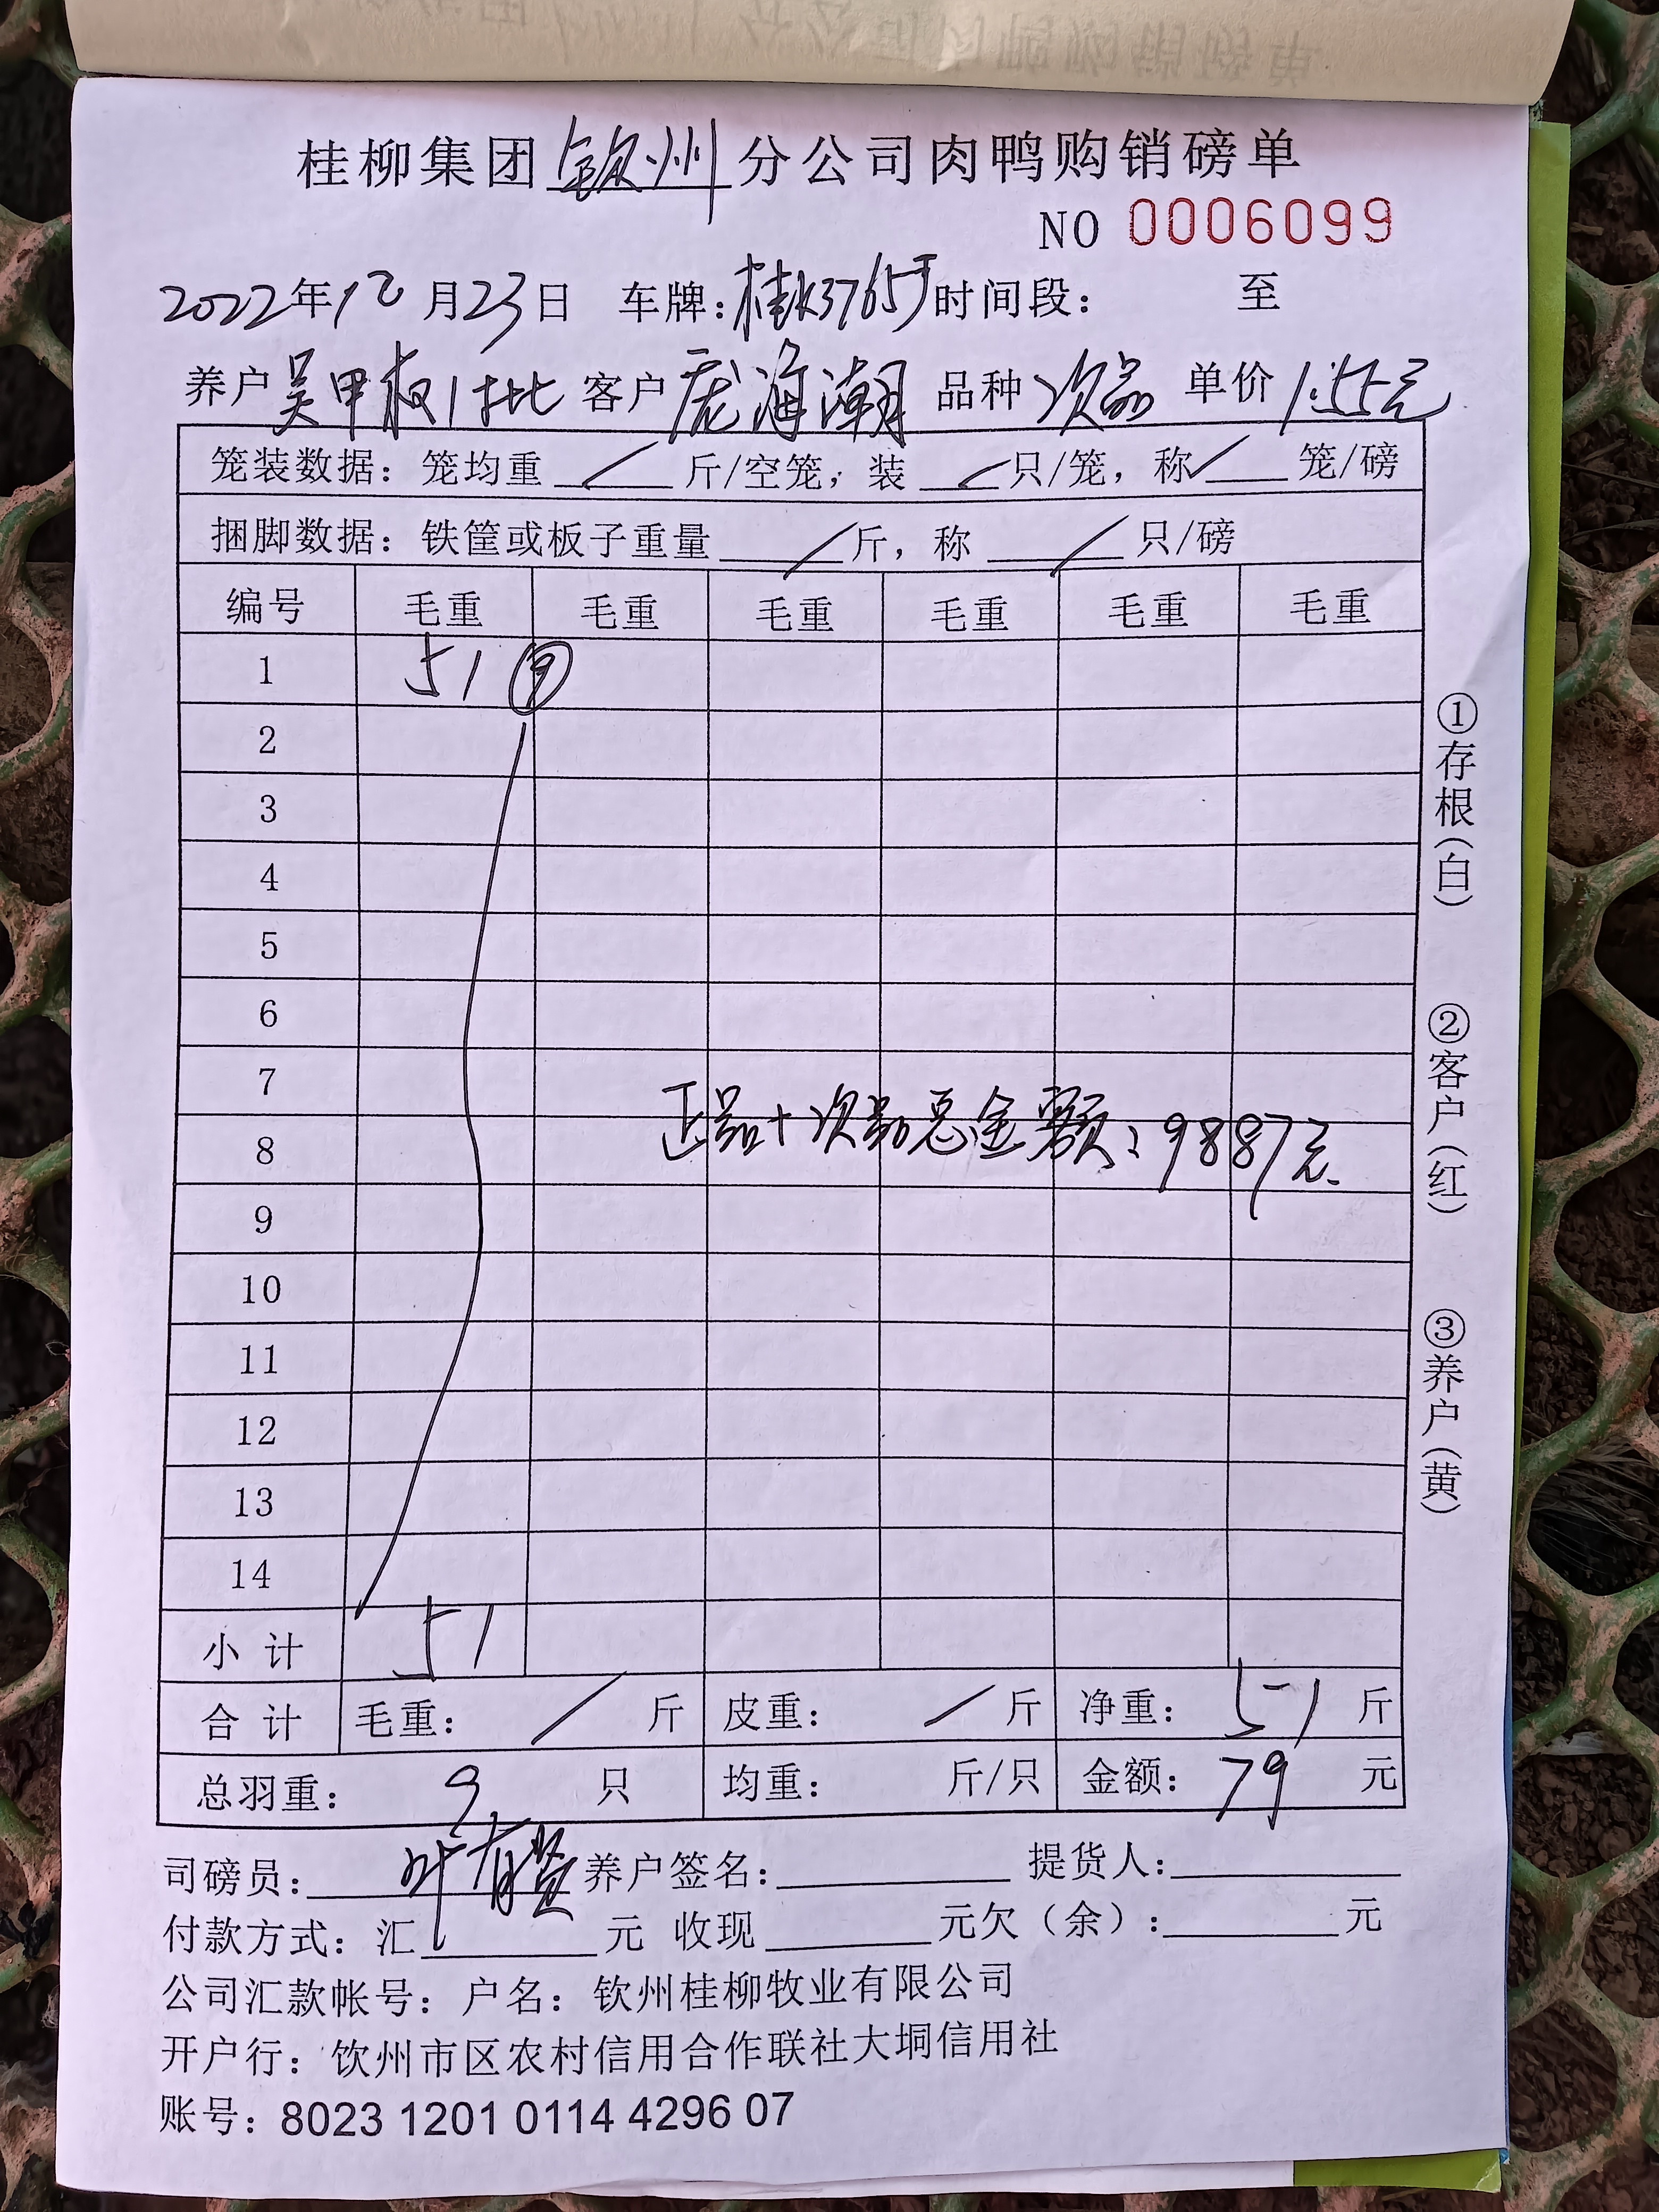 桂柳集团钦州分公司肉鸭购销磅单
NO 0006099
2022年12月23日 车牌:桂K3765 时间段: 至
养户 吴甲权1批 客户 庞海潮 品种 次品 单价 1.55元
笼装数据: 笼均重 / 斤/空笼, 装 / 只/笼, 称 / 笼/磅
捆脚数据: 铁筐或板子重量 / 斤, 称 / 只/磅
编号 毛重 毛重 毛重 毛重 毛重 毛重
1 51 ⑨
2
3
4
5
6
7
8 正品+次品总金额:9887元.
9
10
11
12
13
14
小计 51
合计 毛重: / 斤 皮重: / 斤 净重: 51 斤
总羽重: 9 只 均重: 斤/只 金额: 79 元
司磅员: 叶有贤 养户签名: 提货人:
付款方式: 汇 元 收现 元欠(余): 元
公司汇款帐号: 户名: 钦州桂柳牧业有限公司
开户行: 钦州市区农村信用合作联社大垌信用社
账号: 8023 1201 0114 4296 07
①存根(白)
②客户(红)
③养户(黄)